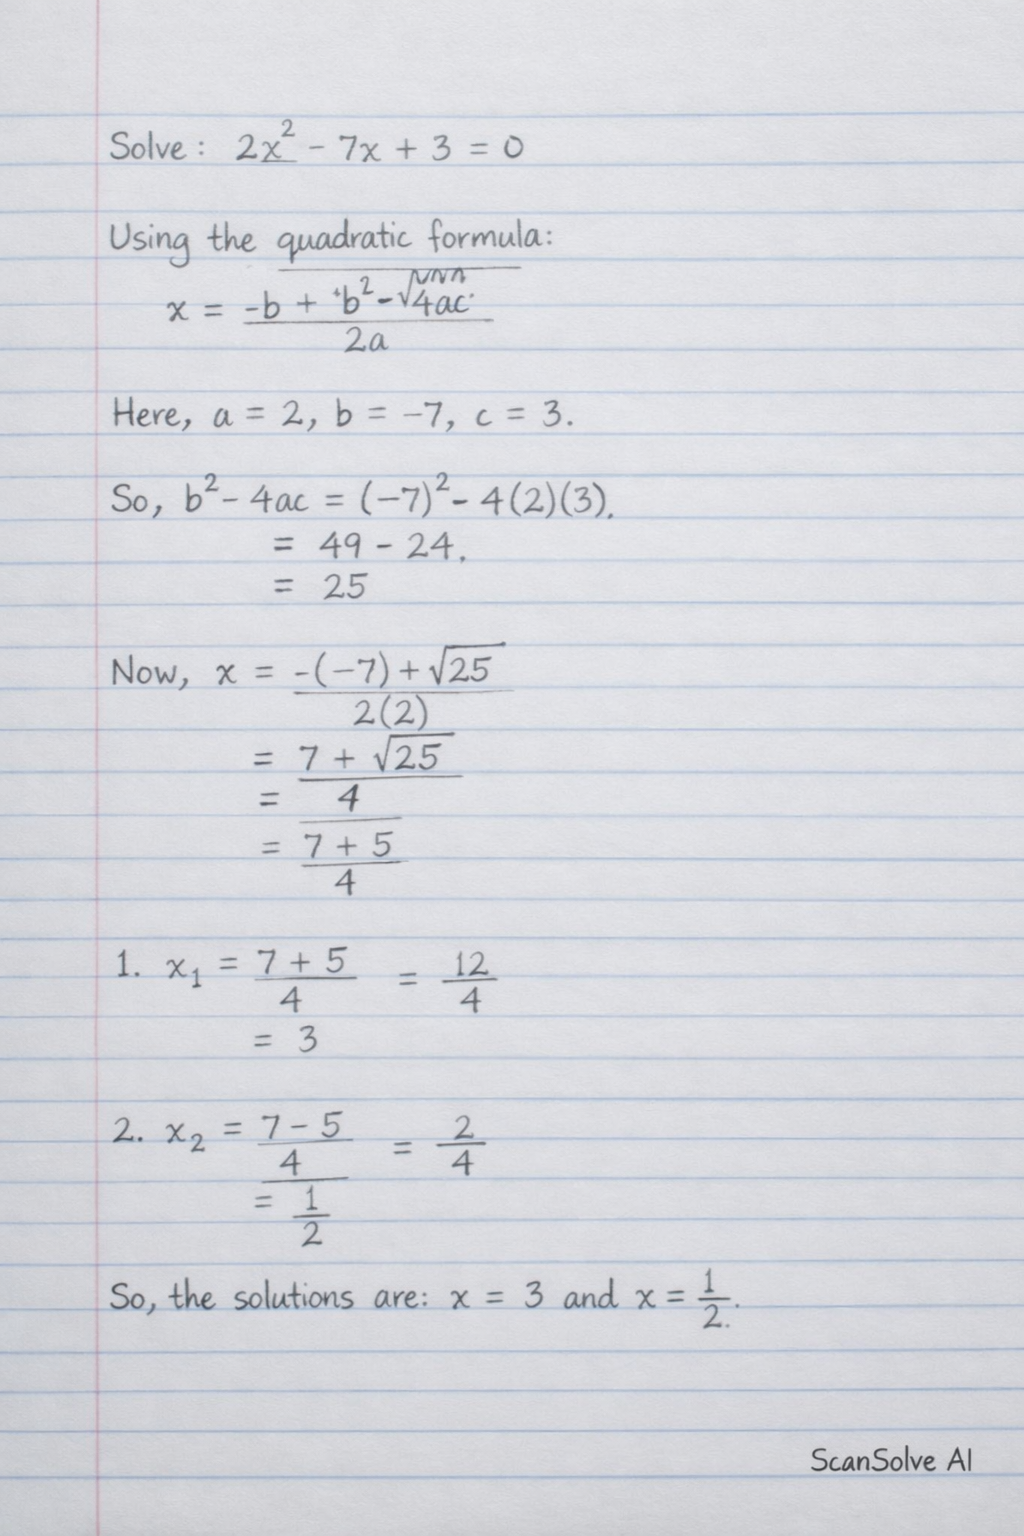 Solve: 2x² - 7x + 3 = 0
Using the quadratic formula:
x = -b + b² - √4ac
2a
Here, a = 2, b = -7, c = 3.
So, b² - 4ac = (-7)² - 4(2)(3).
= 49 - 24.
= 25
Now, x = -(-7) + √25
2(2)
= 7 + √25
= 4
= 7 + 5
4
1. x₁ = 7 + 5 = 12
4 4
= 3
2. x₂ = 7 - 5 = 2
4 4
= 1
2
So, the solutions are: x = 3 and x = 1
2.
ScanSolve AI